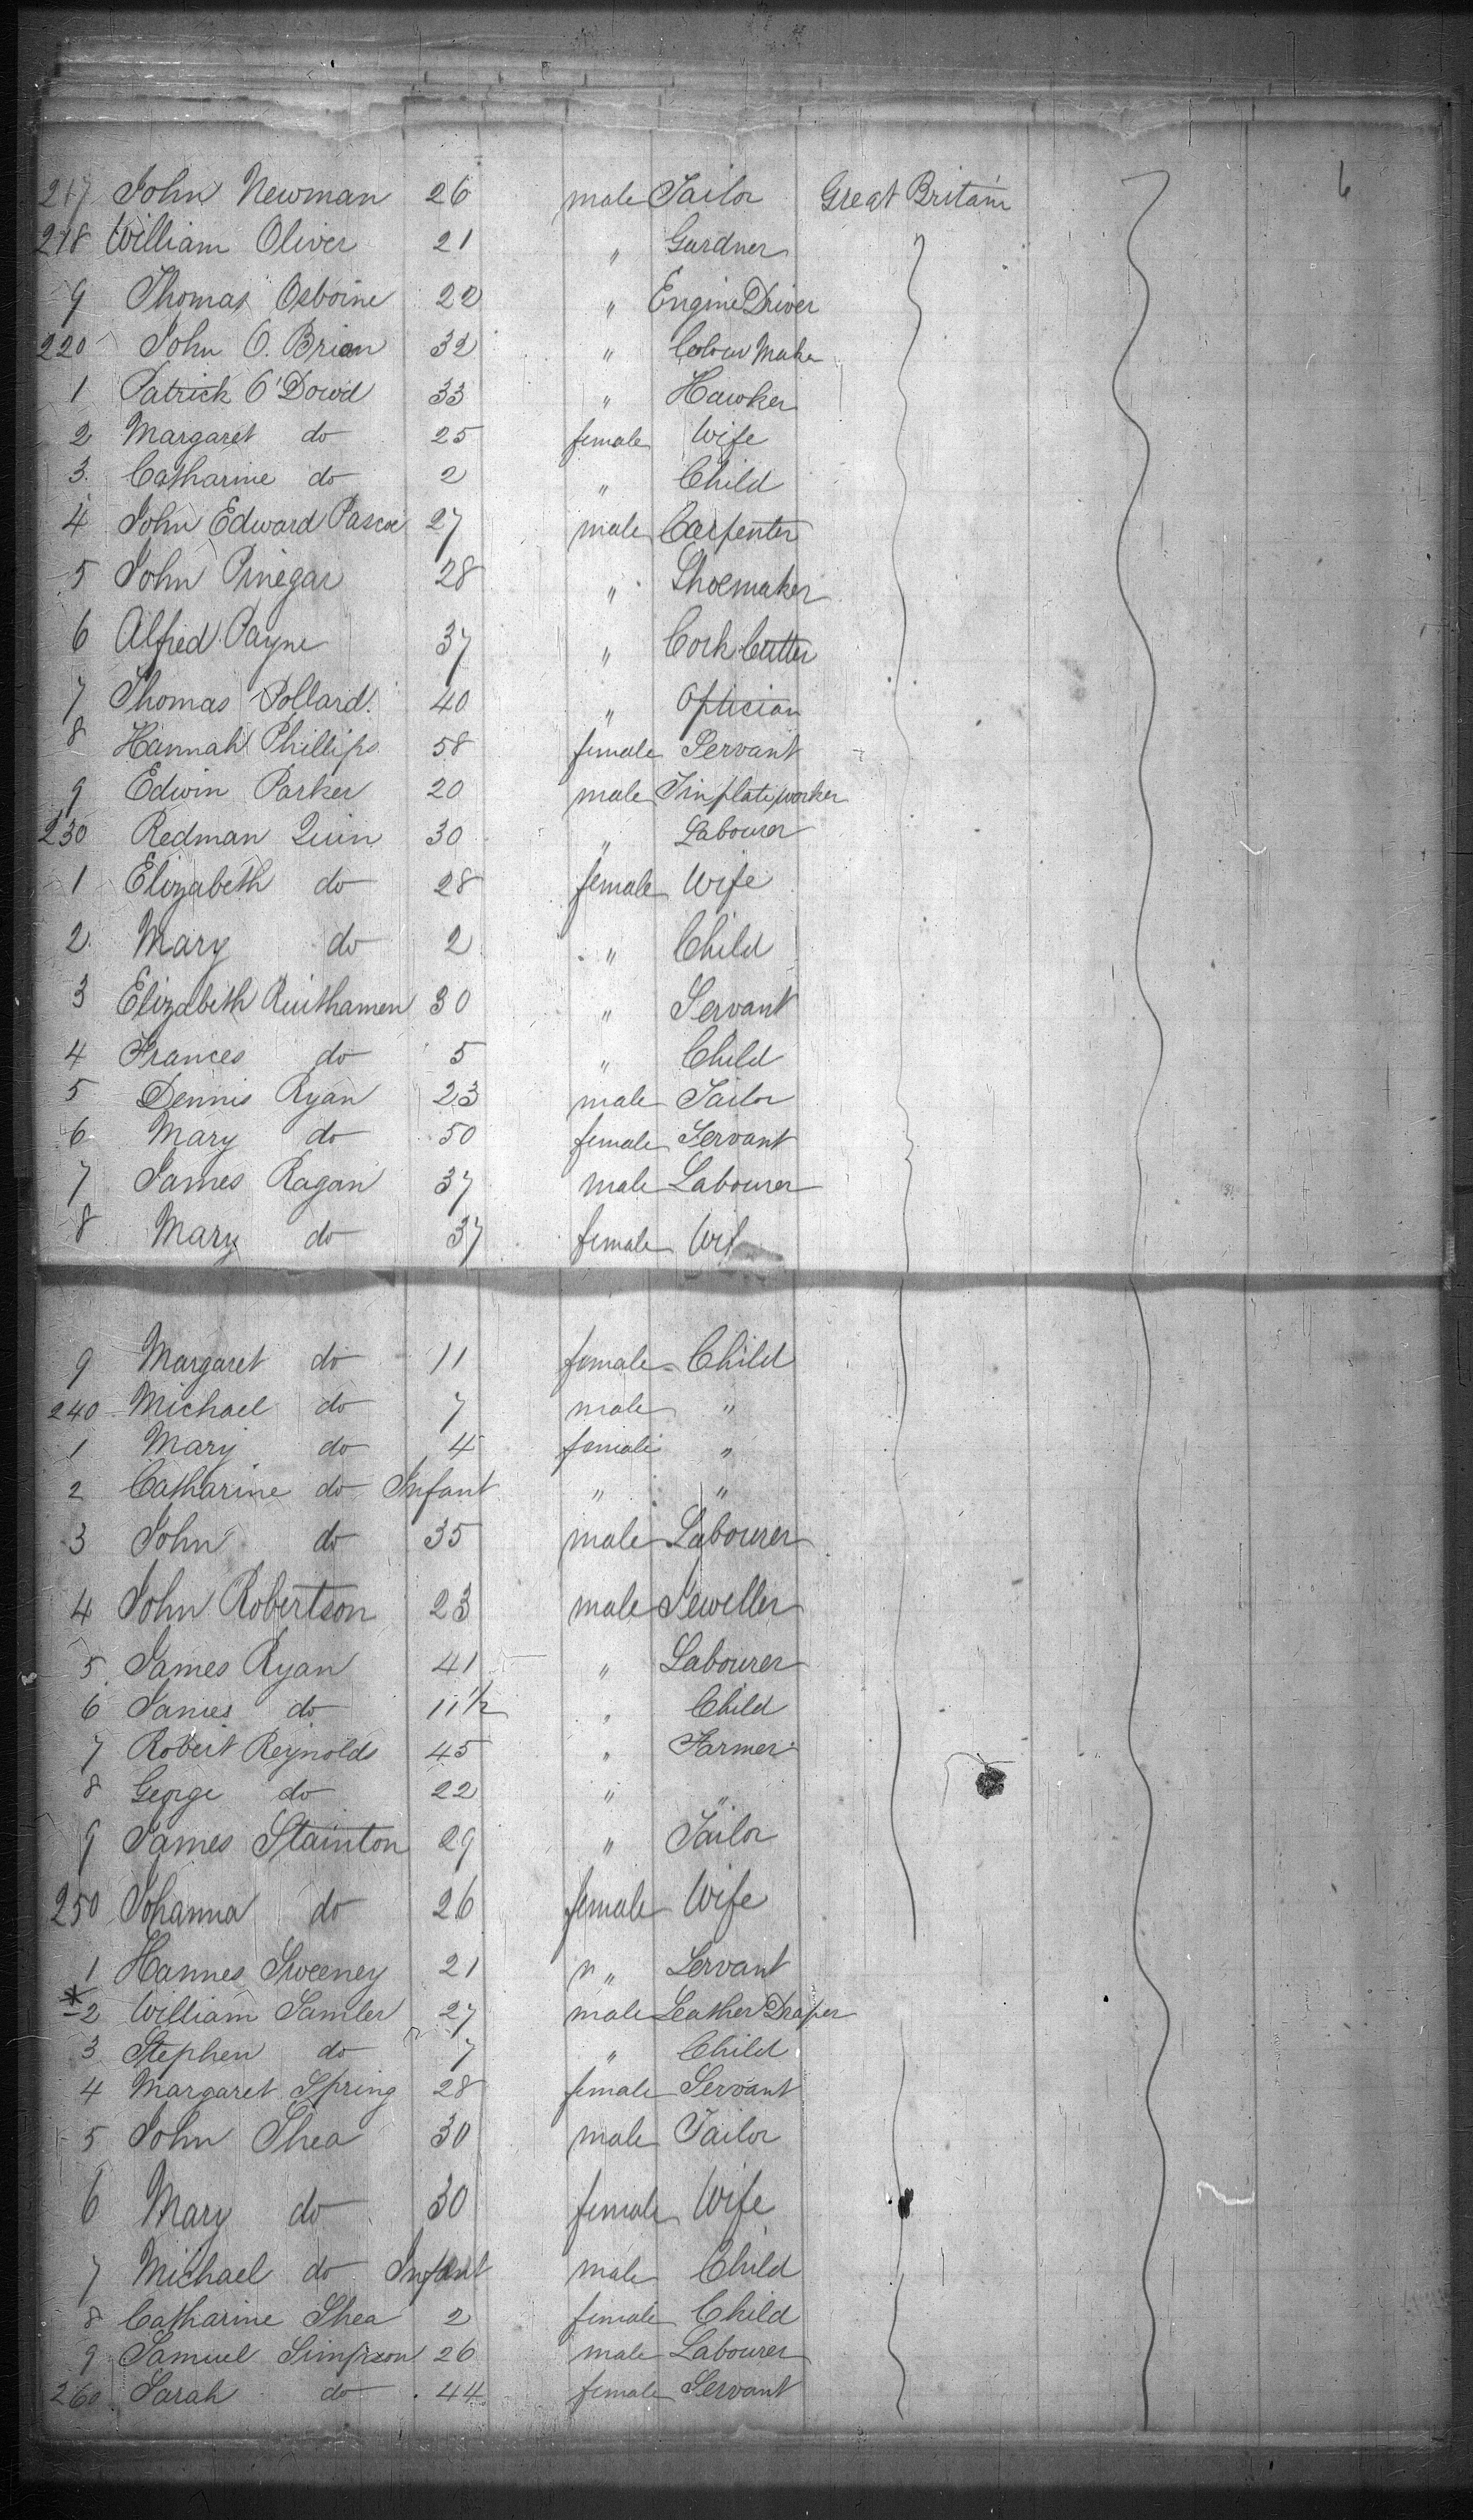 6
217 John Newman 26 male Tailor Great Britain
218 William Oliver 21 " Gardner
9 Thomas Osborne 22 " Engine Driver
220 John O. Brien 32 " Colour Maker
1 Patrick O'Dowd 33 " Hawker
2 Margaret do 25 female Wife
3 Catharine do 2 " Child
4 John Edward Pascoe 27 male Carpenter
5 John Pinegar 28 " Shoemaker
6 Alfred Payne 37 " Cork Cutter
7 Thomas Pollard 40 " Optician
8 Hannah Phillips 58 female Servant
9 Edwin Parker 20 male Tinplate worker
230 Redman Quin 30 " Labourer
1 Elizabeth do 28 female Wife
2 Mary do 2 " Child
3 Elizabeth 30 " Servant
4 Frances do 5 " Child
5 Dennis Ryan 23 male Tailor
6 Mary do 50 female Servant
7 James Ragan 37 male Labourer
8 Mary do 37 female Wif
9 Margaret do 11 female Child
240 Michael do 7 male "
1 Mary do 4 female "
2 Catharine do Infant " "
3 John do 35 male Labourer
4 John Robertson 23 male Jeweller
5 James Ryan 41 " Labourer
6 James do 11 1/2 " Child
7 Robert Reynolds 45 " Farmer
8 George do 22 " "
9 James Stainton 29 " Tailor
250 Johanna do 26 female Wife
1 Hannes Sweeney 21 " Servant
*2 William Samler 27 male Leather Draper
3 Stephen do 7 " Child
4 Margaret Spring 28 female Servant
5 John Shea 30 male Tailor
6 Mary do 30 female Wife
7 Michael do Infant male Child
8 Catharine Shea 2 female Child
9 Samuel Simpson 26 male Labourer
260 Sarah do 44 female Servant